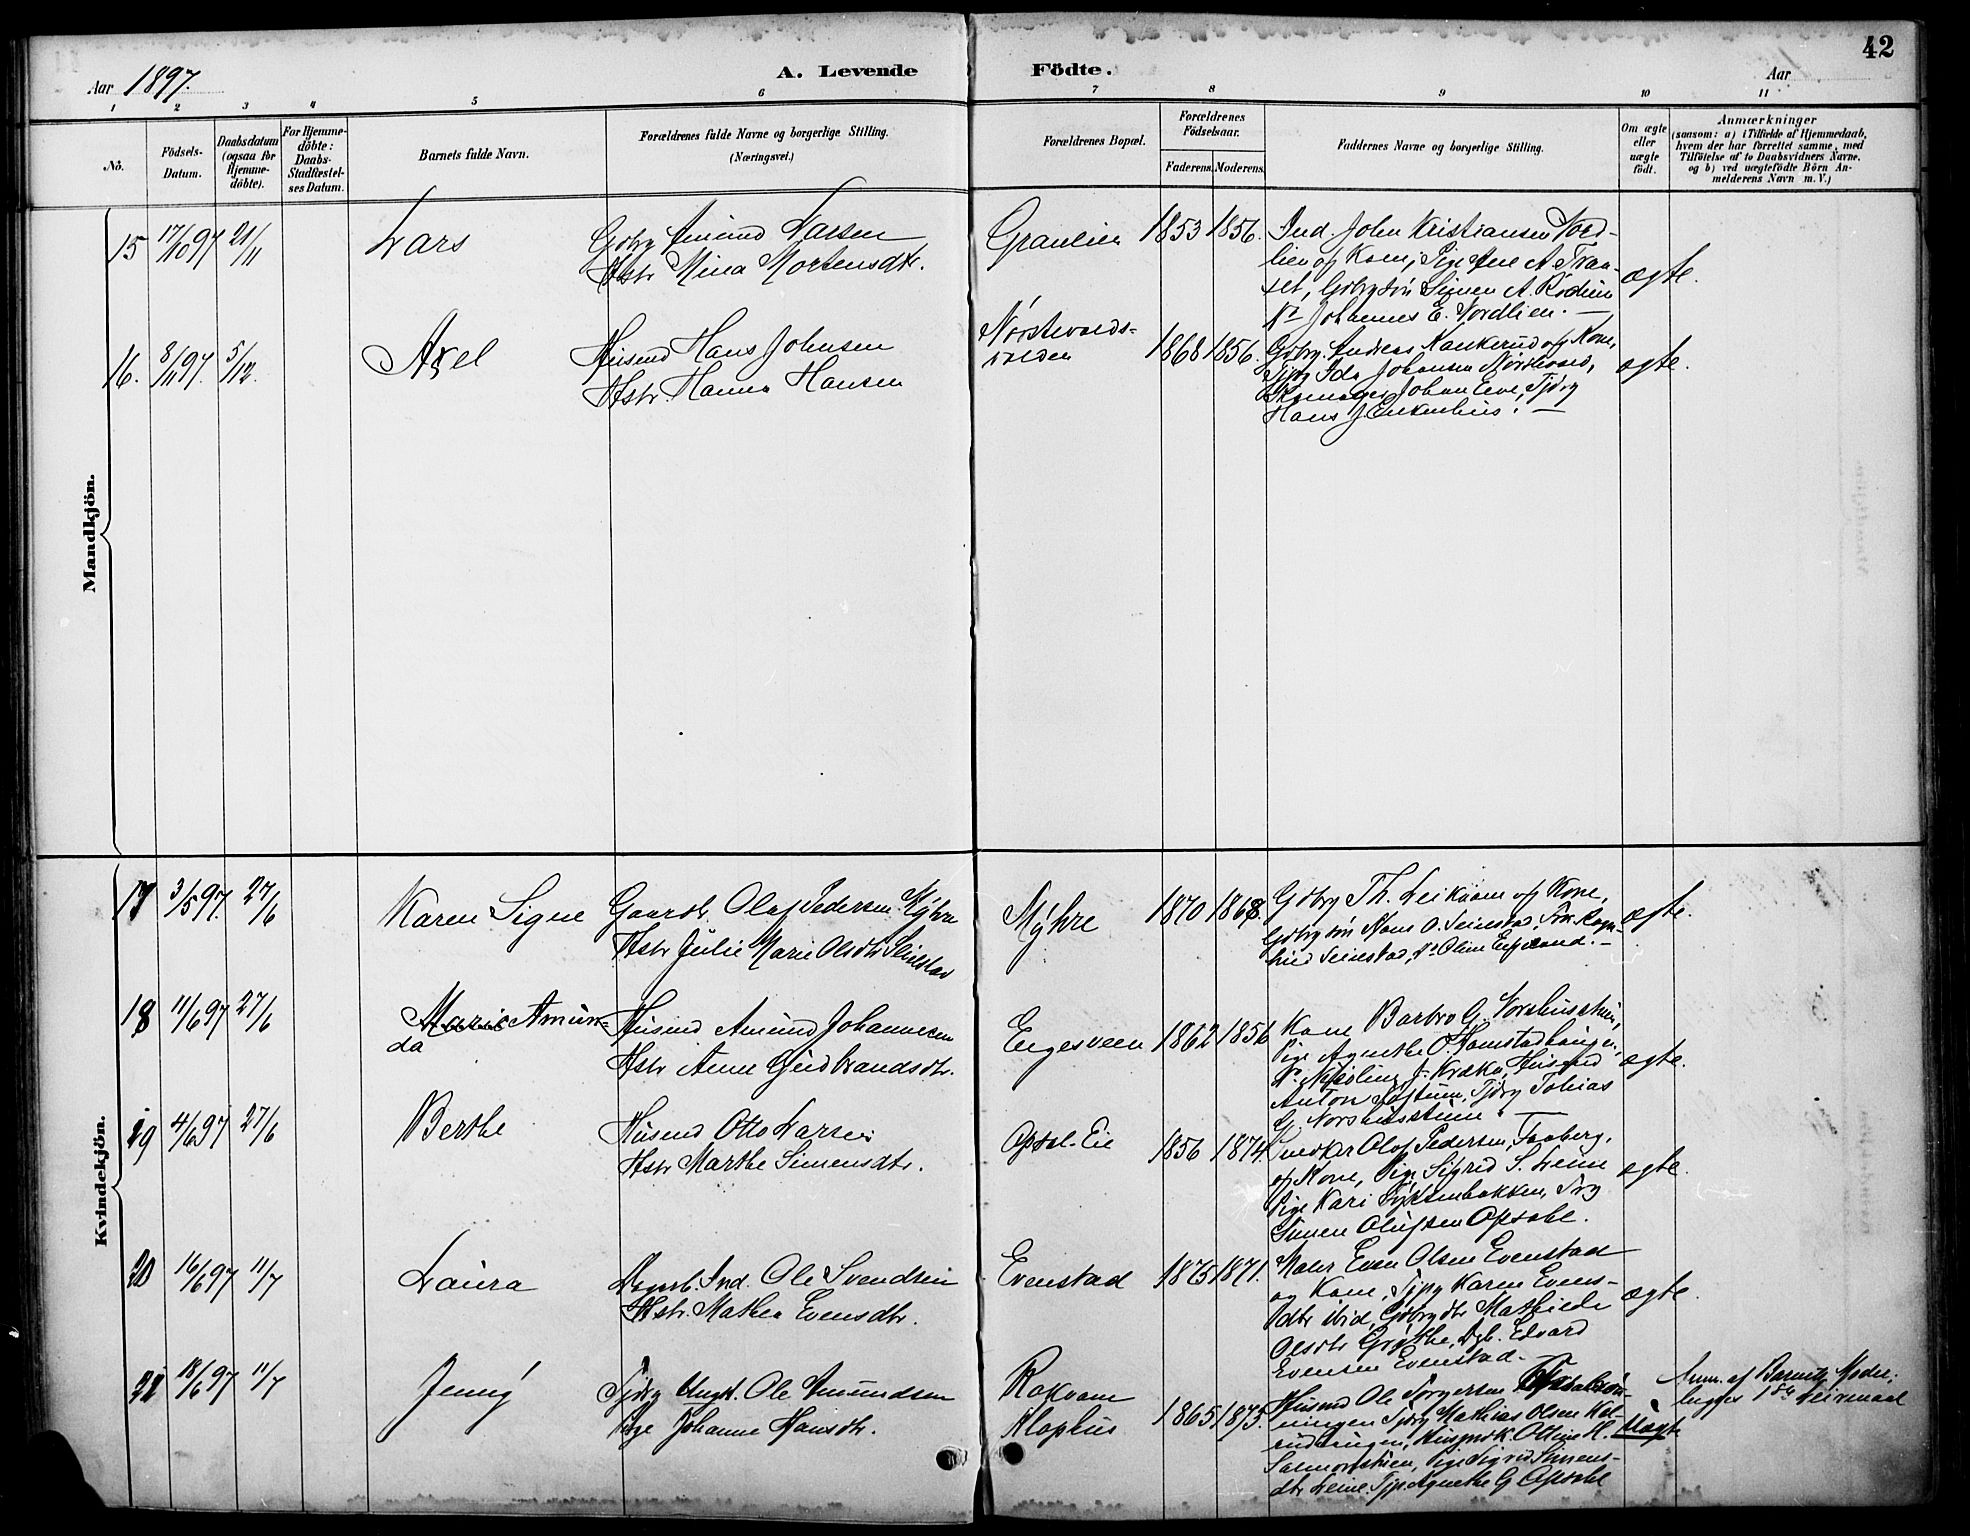 42
Aar 1897.
A. Levende Födte.
Aar
1 2 3 4 5 6 7 8 9 10 11
Nô.
Födsels-Datum.
Daabsdatum (ogsaa for Hjemme-döbte).
For Hjemme-döbte: Daabs-Stadfæstel-ses Datum.
Barnets fulde Navn.
Forældrenes fulde Navne og borgerlige Stilling.
(Næringsvei.)
Forældrenes Bopæl.
Forældrenes Födselsaar.
Faderens. Moderens.
Faddernes Navne og borgerlige Stilling.
Om ægte eller uægte födt.
Anmærkninger
(saasom: a) i Tilfælde af Hjemmedaab,
hvem der har forrettet samme, med
Tilföielse af to Daabsvidners Navne,
og b) ved uægtefödte Börn An-
melderens Navn m. V.)
Mandkjön.
15 17/10 97 21/11 Lars
Gbrg Amund Larsen
Hstr Mina Mortensdtr.
Graulien 1853 1856.
Ind. John Kristiansen Nord-
lien og Kone, Pige Ane A. Traa-
set, Gbrg sön Simen A. Rodlien
Do Johannes E. Nordlien. —
ægte.
16. 8/11 97. 5/12. Axel
Husmd Hans Johnsen
Hstr Hanna Hansen
1868 1856.
Gbrg. Andreas og Kone,
Ida Johansen
Johan
Hans J. —
ægte.
Kvindekjön.
17 3/5 97. 27/6 Karen Signe
Gaardbr. Olaf Pedersen Myhre
Hstr Julie Marie Olsdtr
Myhre 1870 1868.
Gbrg Th. Leikvam og Kone,
Gbrg sön Hans O. Seiestad, Frk. Ragn-
hild Seiestad, Do Oline —
ægte.
18 11/6 97 27/6 Marie Amun-
da
Husmd Amund Johannesen
Hstr Anne Gudbrandsdtr.
Engesveen 1862 1856
Kone Barbro G. Norshusstuen,
Pige Agnethe O.
J. Krække, Husmd
Anton Tobias
G. Norshusstuen. —
ægte.
19 4/6 97 27/6 Berthe
Husmd Otto Larsen
Hstr Marthe Simensdtr.
Opsal-Eie 1856 1874.
Snedker Olof Pedersen, Faaberg,
og Kone, Pige Sigrid S. Leine
Pige Kari
Simen Olufsen Opsahl.
ægte.
20 16/6 97 11/7 Laura
Ind. Ole Svendsen
Hstr. Mathea Evensdtr.
Evenstad 1875 1871.
Maler Even Olsen Evenstad
og Kone, Karen Evens-
dtr ibid, Gbrg dtr Mathilde
Olsdtr Grythe, Dgb. Edvard
Evensen Evenstad.
ægte.
21 18/6 97 11/7 Jenny
Tjbrg Ungk. Ole Amundsen
Pige Johanne Hansdtr.
Rokvam
Klophus 1865 1875.
Husmd Ole Torgersen
Mathias Olsen
Ottine H.
Pige Sigrid Simens-
dtr Leine, Agnethe G. Opsahl
Uægte
Anm. af Barnets Moder:
begges 1ste Leiermaal